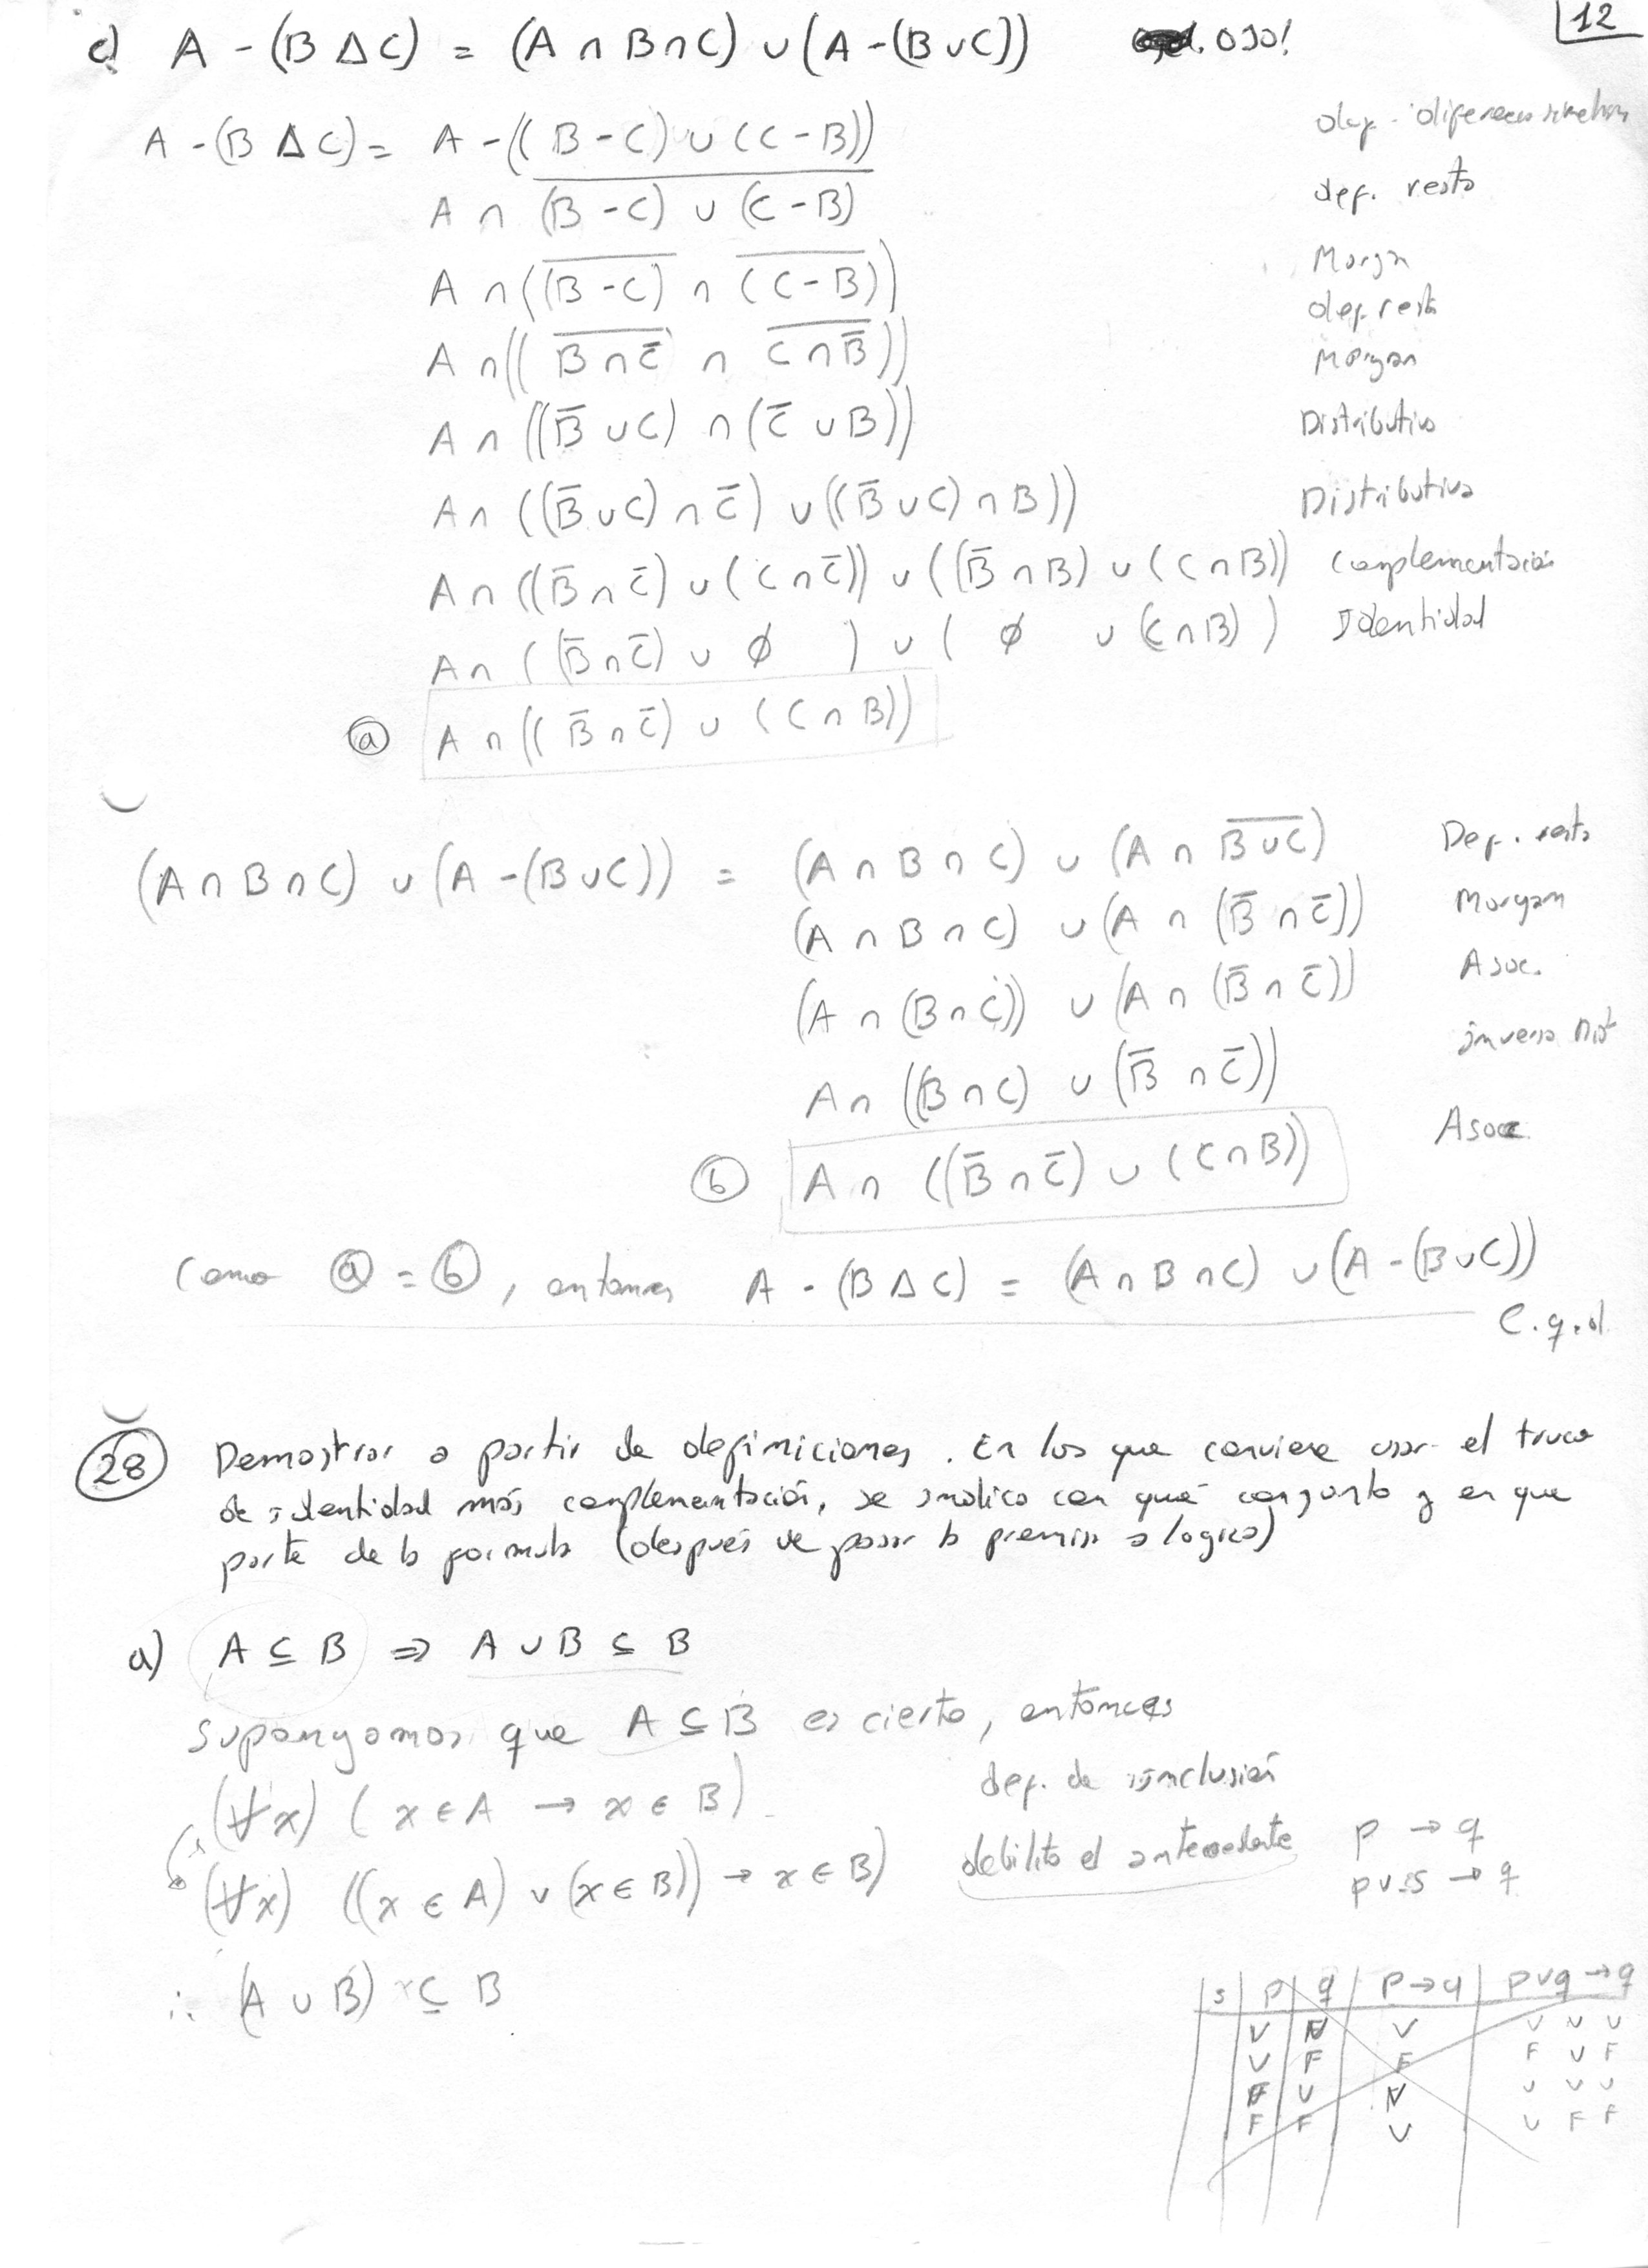 c) A - (B Δ C) = (A ∩ B ∩ C) ∪ (A - (B ∪ C)) OJO! 12
A - (B Δ C) = A - ((B - C) ∪ (C - B)) def. diferencia
A ∩ \overline{(B - C) ∪ (C - B)} def. resto
A ∩ (\overline{(B - C)} ∩ \overline{(C - B)}) Morgan
def. resto
A ∩ ((\overline{B ∩ C̅} ∩ \overline{C ∩ B̅})) Morgan
A ∩ ((B̅ ∪ C) ∩ (C̅ ∪ B)) Distributiva
A ∩ ((B̅ ∪ C) ∩ C̅) ∪ ((B̅ ∪ C) ∩ B)) Distributiva
A ∩ ((B̅ ∩ C̅) ∪ (C ∩ C̅)) ∪ ((B̅ ∩ B) ∪ (C ∩ B)) Complementación
A ∩ ((B̅ ∩ C̅) ∪ ∅ ) ∪ ( ∅ ∪ (C ∩ B) ) Identidad
ⓐ A ∩ ((B̅ ∩ C̅) ∪ (C ∩ B))
(A ∩ B ∩ C) ∪ (A - (B ∪ C)) = (A ∩ B ∩ C) ∪ (A ∩ \overline{B ∪ C}) Def. resto
(A ∩ B ∩ C) ∪ (A ∩ (B̅ ∩ C̅)) Morgan
(A ∩ (B ∩ C)) ∪ (A ∩ (B̅ ∩ C̅)) Asoc.
A ∩ ((B ∩ C) ∪ (B̅ ∩ C̅)) inversa Dist
ⓑ A ∩ ((B̅ ∩ C̅) ∪ (C ∩ B)) Asoc
Como ⓐ = ⓑ, entonces A - (B Δ C) = (A ∩ B ∩ C) ∪ (A - (B ∪ C))
C.q.d.
28 Demostrar a partir de definiciones. En los que conviene usar el truco
de identidad más complementación, se indica con qué conjunto y en que
parte de la formula (después de pasar la premisa a logica)
a) A ⊆ B ⇒ A ∪ B ⊆ B
Supongamos que A ⊆ B es cierto, entonces
(∀x) (x ∈ A → x ∈ B) def. de inclusión
(∀x) ((x ∈ A) ∨ (x ∈ B)) → x ∈ B) debilito el antecedente p → q
p ∨ s → q
∴ (A ∪ B) ⊆ B
s p q p→q p∨q→q
V V V V V V
V F F F V F
F V V V V V
F F V V F F